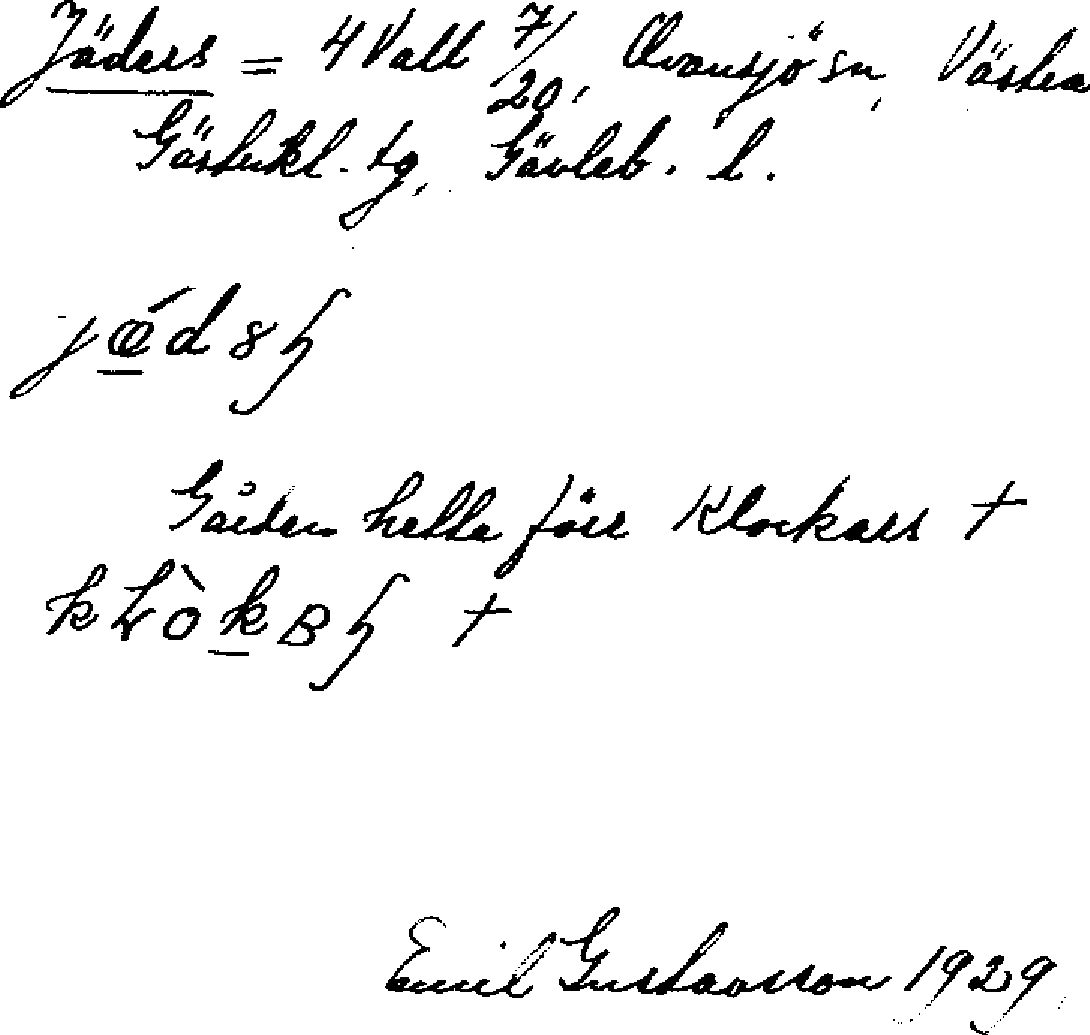 Jäders = 4 Vall 7/20, Ovansjö sn, Västra
Gästrikl. tg, Gävleb. l.
jǽdsɧ
Gården hette förr Klockars +
kLòkBɧ +
Emil Gustavsson 1929